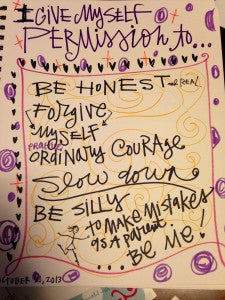 I GIVE MYSELF
PERMISSION to...
BE HONEST and REAL
FORGIVE
MYSELF
PRACTICE
ORDINARY COURAGE
Slow down
BE SILLY
to MAKE MISTAKES
as A parent
BE ME!
OCTOBER 2013